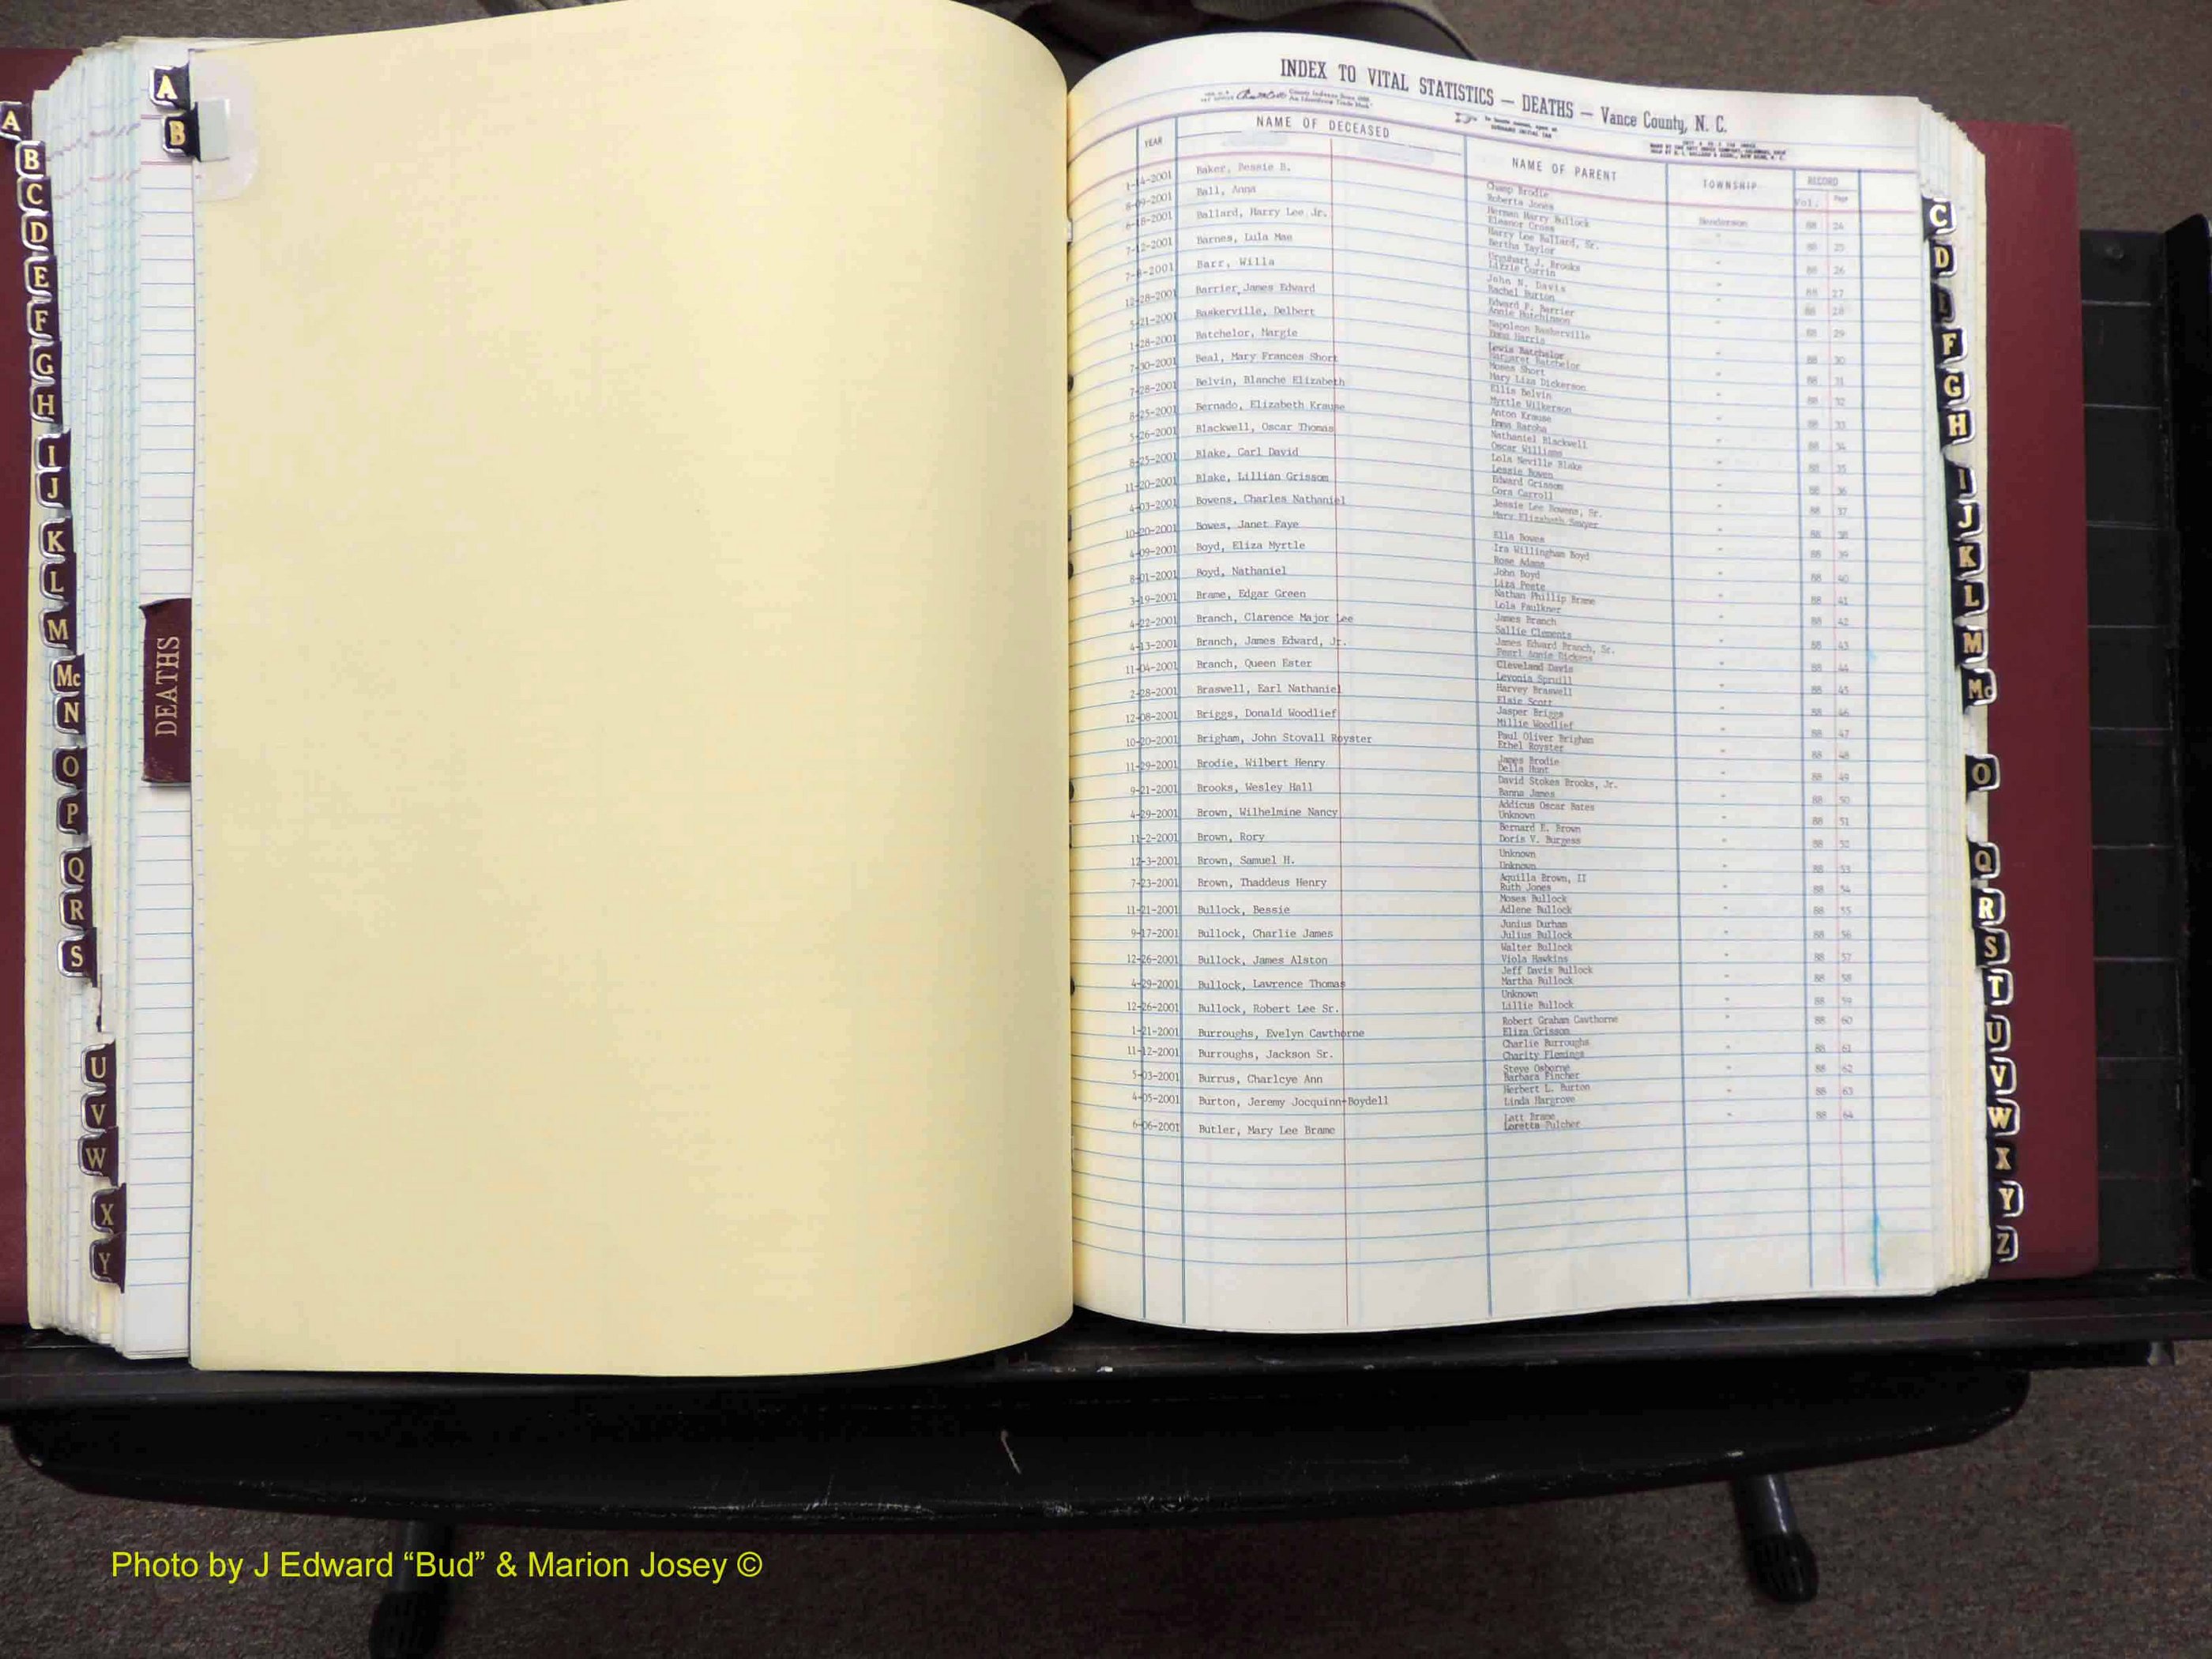 A
B
A
B
C
D
E
F
G
H
I
J
K
L
M
Mc
N
O
P
Q
R
S
U
V
W
X
Y
DEATHS
INDEX TO VITAL STATISTICS — DEATHS — Vance County, N. C.
YEAR NAME OF DECEASED NAME OF PARENT TOWNSHIP RECORD
Vol. Page
1-14-2001 Baker, Bessie B. Champ Brodie Henderson 88 24
Roberta Jones
8-09-2001 Ball, Anna Herman Harry Bullock " 88 25
Eleanor Cross
6-18-2001 Ballard, Harry Lee Jr. Harry Lee Ballard, Sr. " 88 26
Bertha Taylor
7-12-2001 Barnes, Lula Mae Urquhart J. Brooks " 88 27
Lizzie Currin
7-8-2001 Barr, Willa John N. Davis " 88 28
Rachel Burton
12-28-2001 Barrier, James Edward Edward F. Barrier " 88 29
Annie Hutchinson
5-21-2001 Baskerville, Delbert Napoleon Baskerville " 88 30
Emma Harris
1-28-2001 Batchelor, Margie Lewis Batchelor " 88 31
Margaret Batchelor
7-30-2001 Beal, Mary Frances Short Moses Short " 88 32
Mary Liza Dickerson
7-28-2001 Belvin, Blanche Elizabeth Ellis Belvin " 88 33
Myrtle Wilkerson
8-25-2001 Bernado, Elizabeth Krause Anton Krause " 88 34
Emma Baroha
5-26-2001 Blackwell, Oscar Thomas Nathaniel Blackwell " 88 35
Oscar Williams
8-25-2001 Blake, Carl David Lola Neville Blake " 88 36
Lessie Bowen
11-20-2001 Blake, Lillian Grissom Edward Grissom " 88 37
Cora Carroll
4-03-2001 Bowens, Charles Nathaniel Jessie Lee Bowens, Sr. " 88 38
Mary Elizabeth Sawyer
10-20-2001 Bowes, Janet Faye Ella Bowes " 88 39
4-09-2001 Boyd, Eliza Myrtle Ira Willingham Boyd " 88 40
Rose Adams
8-01-2001 Boyd, Nathaniel John Boyd " 88 41
Liza Peete
3-19-2001 Brame, Edgar Green Nathan Phillip Brame " 88 42
Lola Faulkner
4-22-2001 Branch, Clarence Major Lee James Branch " 88 43
Sallie Clements
4-13-2001 Branch, James Edward, Jr. James Edward Branch, Sr. " 88 44
Pearl Annie Dickens
11-04-2001 Branch, Queen Ester Cleveland Davis " 88 45
Levonia Spruill
2-28-2001 Braswell, Earl Nathaniel Harvey Braswell " 88 46
Elsie Scott
12-08-2001 Briggs, Donald Woodlief Jasper Briggs " 88 47
Millie Woodlief
10-20-2001 Brigham, John Stovall Royster Paul Oliver Brigham " 88 48
Ethel Royster
11-29-2001 Brodie, Wilbert Henry James Brodie " 88 49
Della Hunt
9-21-2001 Brooks, Wesley Hall David Stokes Brooks, Jr. " 88 50
Banna James
4-29-2001 Brown, Wilhelmine Nancy Addicus Oscar Bates " 88 51
Unknown
11-2-2001 Brown, Rory Bernard E. Brown " 88 52
Doris V. Burgess
12-3-2001 Brown, Samuel H. Unknown " 88 53
Unknown
7-23-2001 Brown, Thaddeus Henry Aquilla Brown, II " 88 54
Ruth Jones
11-21-2001 Bullock, Bessie Moses Bullock " 88 55
Adlene Bullock
9-17-2001 Bullock, Charlie James Junius Durham " 88 56
Julius Bullock
12-26-2001 Bullock, James Alston Walter Bullock " 88 57
Viola Hawkins
4-29-2001 Bullock, Lawrence Thomas Jeff Davis Bullock " 88 58
Martha Bullock
12-26-2001 Bullock, Robert Lee Sr. Unknown " 88 59
Lillie Bullock
1-21-2001 Burroughs, Evelyn Cawthorne Robert Graham Cawthorne " 88 60
Eliza Grissom
11-12-2001 Burroughs, Jackson Sr. Charlie Burroughs " 88 61
Charity Flemings
5-03-2001 Burrus, Charlcye Ann Steve Osborne " 88 62
Barbara Fincher
4-05-2001 Burton, Jeremy Jocquinn-Boydell Herbert L. Burton " 88 63
Linda Hargrove
6-06-2001 Butler, Mary Lee Brame Latt Brame " 88 64
Loretta Pulcher
C
D
E
F
G
H
I
J
K
L
M
Mc
O
Q
R
S
T
U
V
W
X
Y
Z
Photo by J Edward “Bud” & Marion Josey ©